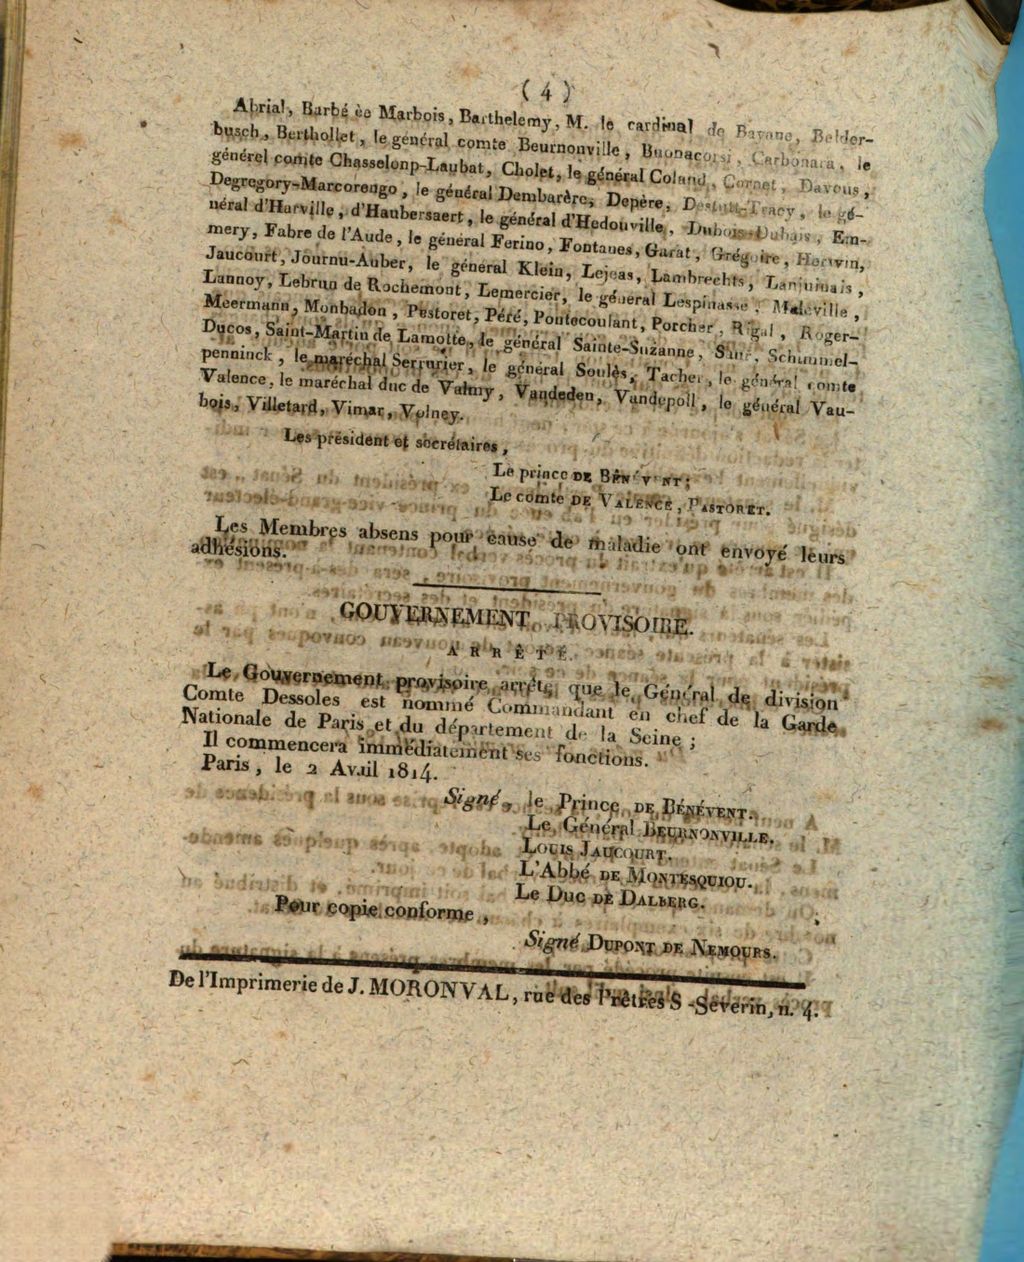 ( 4 )
Abrial, Barbé de Marbois, Barthelemy, M. le cardinal de Bayane, Belder-
busch, Berthollet, le général comte Beurnonville, Buonacorsi, Carbonara, le
général comte Chasseloup-Laubat, Cholet, le général Colaud, Cornet, Davous,
Degregory-Marcorengo, le général Dembarère, Depère, Destutt-Tracy, le gé-
néral d'Harville, d'Haubersaert, le général d'Hedouville, Dubois-Dubais, Em-
mery, Fabre de l'Aude, le général Ferino, Fontanes, Garat, Grégoire, Herwin,
Jaucourt, Journu-Auber, le général Klein, Lejeas, Lambrechts, Lanjuinais,
Lannoy, Lebrun de Rochemont, Lemercier, le général Lespinasse, Maleville,
Meermann, Monbadon, Pastoret, Péré, Pontecoulant, Porcher, Rigal, Roger-
Ducos, Saint-Martin de Lamotte, le général Sainte-Suzanne, Saur, Schimmel-
penninck, le maréchal Serrurier, le général Soulès, Tacher, le général comte
Valence, le maréchal duc de Valmy, Vandeden, Vandepoll, le général Vau-
bois, Villetard, Vimar, Volney.
Les président et sécrétaires,
Le prince DE BÉNÉVENT;
Le comte DE VALENCE, PASTORET.
Les Membres absens pour cause de maladie ont envoyé leurs
adhésions.
GOUVERNEMENT PROVISOIRE.
ARRÊTÉ.
Le Gouvernement provisoire arrête que le Général de division
Comte Dessoles est nommé Commandant en chef de la Garde
Nationale de Paris et du département de la Seine;
Il commencera immédiatement ses fonctions.
Paris, le 2 Avril 1814.
Signé, le Prince DE BÉNÉVENT.
Le Général BEURNONVILLE.
LOUIS JAUCOURT.
L'Abbé DE MONTESQUIOU.
Le Duc DE DALBERG.
Pour copie conforme,
Signé DUPONT DE NEMOURS.
De l'Imprimerie de J. MORONVAL, rue des Prêtres S-Severin, n. 4.